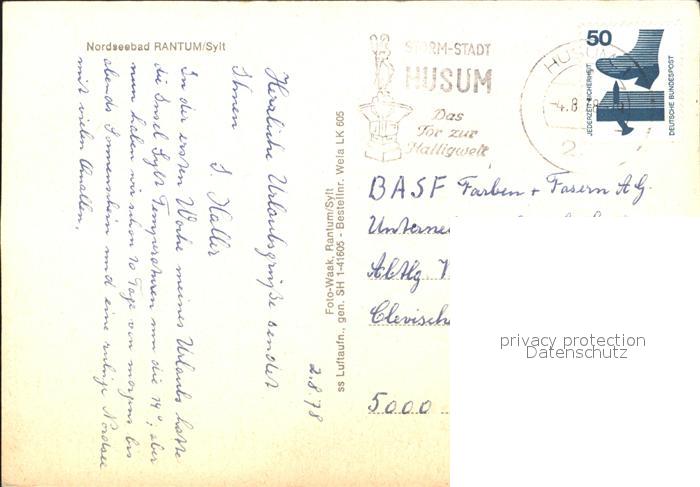 Nordseebad RANTUM/Sylt
2.8.78
Herzliche Urlaubsgrüße sendet
Ihnen
S Haller
In der ersten Woche meines Urlaubs hatte
die Insel Sylt Temperaturen um die 14°, aber
nun haben wir schon 10 Tage von morgens bis
abends Sonnenschein und eine ruhige Nordsee
mit vielen Quallen.
Foto-Waak, Rantum/Sylt
ss Luftaufn., gen. SH 1-41605 - Bestellnr. Wela LK 605
STORM-STADT
HUSUM
Das
Tor zur
Halligwelt
HUSUM
-4.8
2
50
JEDERZEIT SICHERHEIT
DEUTSCHE BUNDESPOST
BASF Farben + Fasern AG.
Unterne
Abtlg
Clevisch
5000
privacy protection
Datenschutz